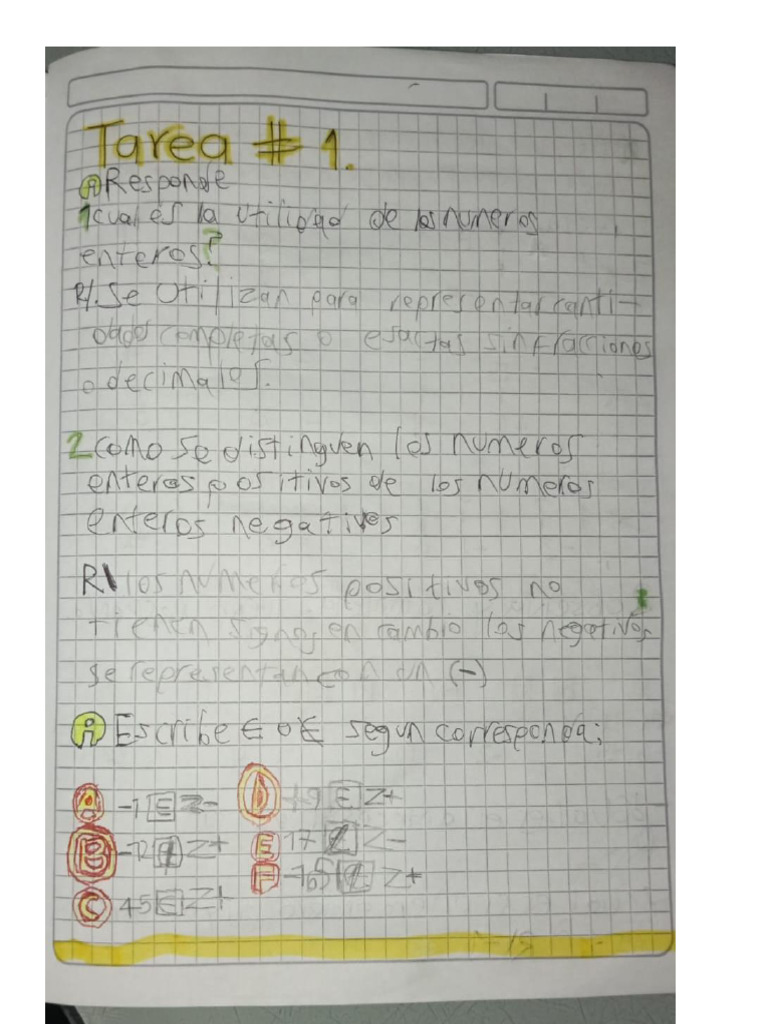 Tarea # 1.
i Responde
1 cual es la utilidad de los numeros
enteros?
R/. Se utilizan para representar canti-
dades completas o esactas sin fracciones
o decimales.
2 como se distinguen los numeros
enteros positivos de los numeros
enteros negativos
R\ los numeros positivos no
tienen signos, en cambio los negativos
se representan con un (-)
i Escribe ∈ o ∉ segun corresponda:
A -1 ∈ Z-
D +9 ∈ Z+
B -12 ∉ Z+
E 17 ∉ Z-
C 45 ∈ Z+
F -765 ∉ Z+